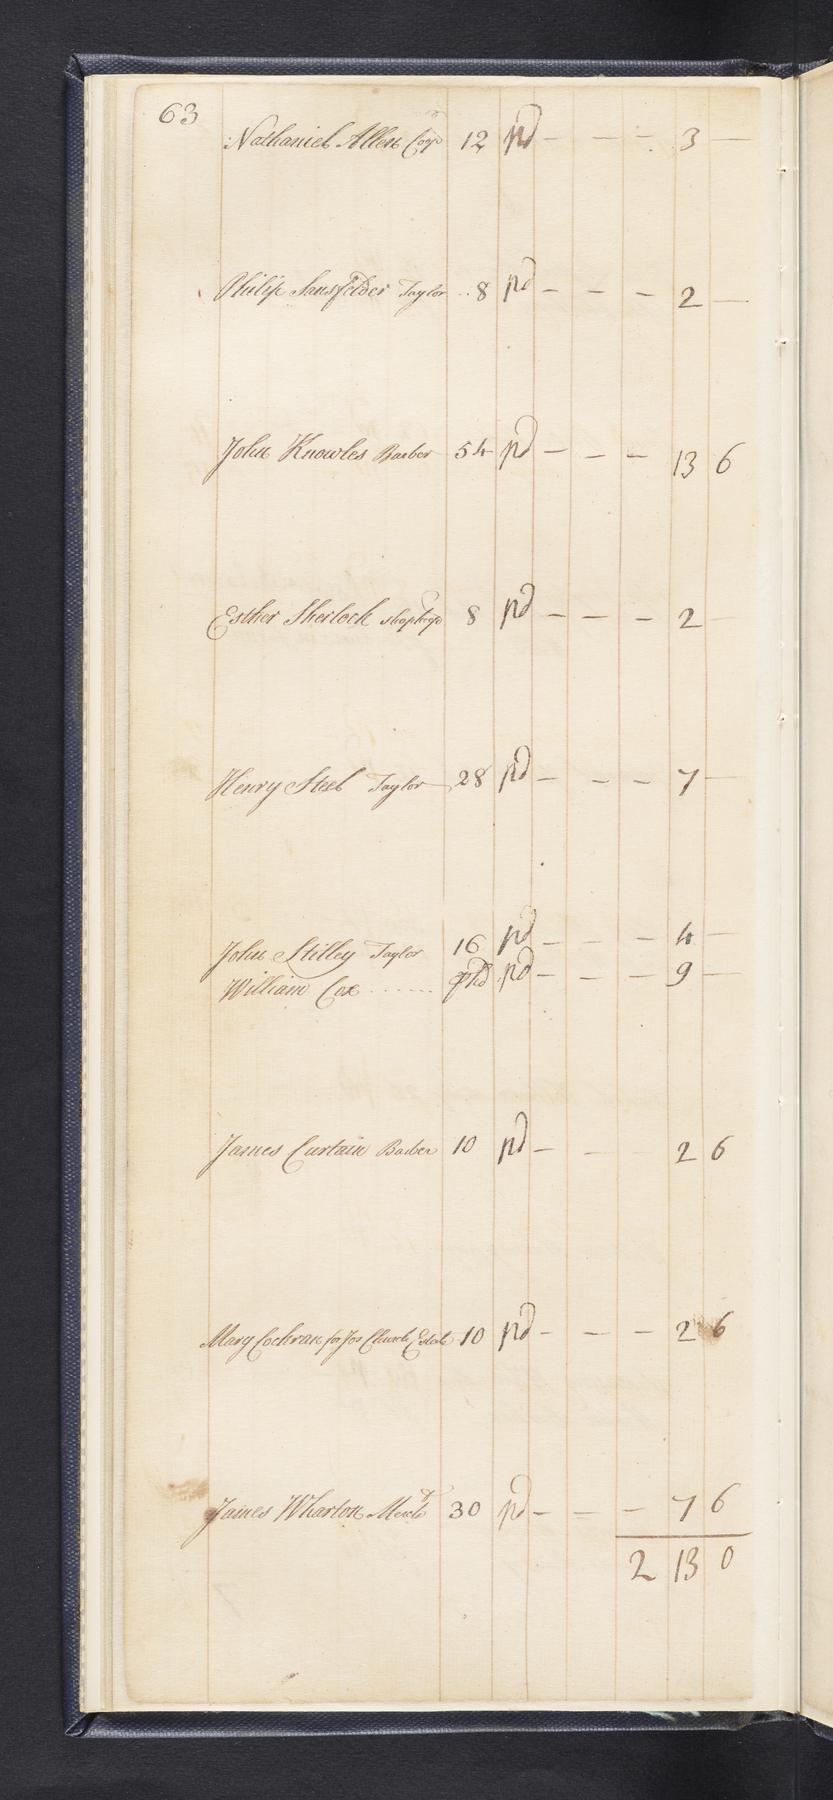 63
Nathaniel Allen Coopr 12 pd — — — 3 —
Philip Sansfelder Taylor .. 8 pd — — — 2 —
John Knowles Barber 54 pd — — — 13 6
Esther Sherlock shopkepr 8 pd — — — 2 —
Henry Steel Taylor — 28 pd — — — 7 —
John Stilley Taylor 16 pd — — — 4 —
William Cox ....... pd — — — 9 —
James Curtain Barber 10 pd — — — 2 6
Mary Cochran for Jos Church Estate 10 pd — — — 2 6
James Wharton Mercht 30 pd — — — 7 6
2 13 0